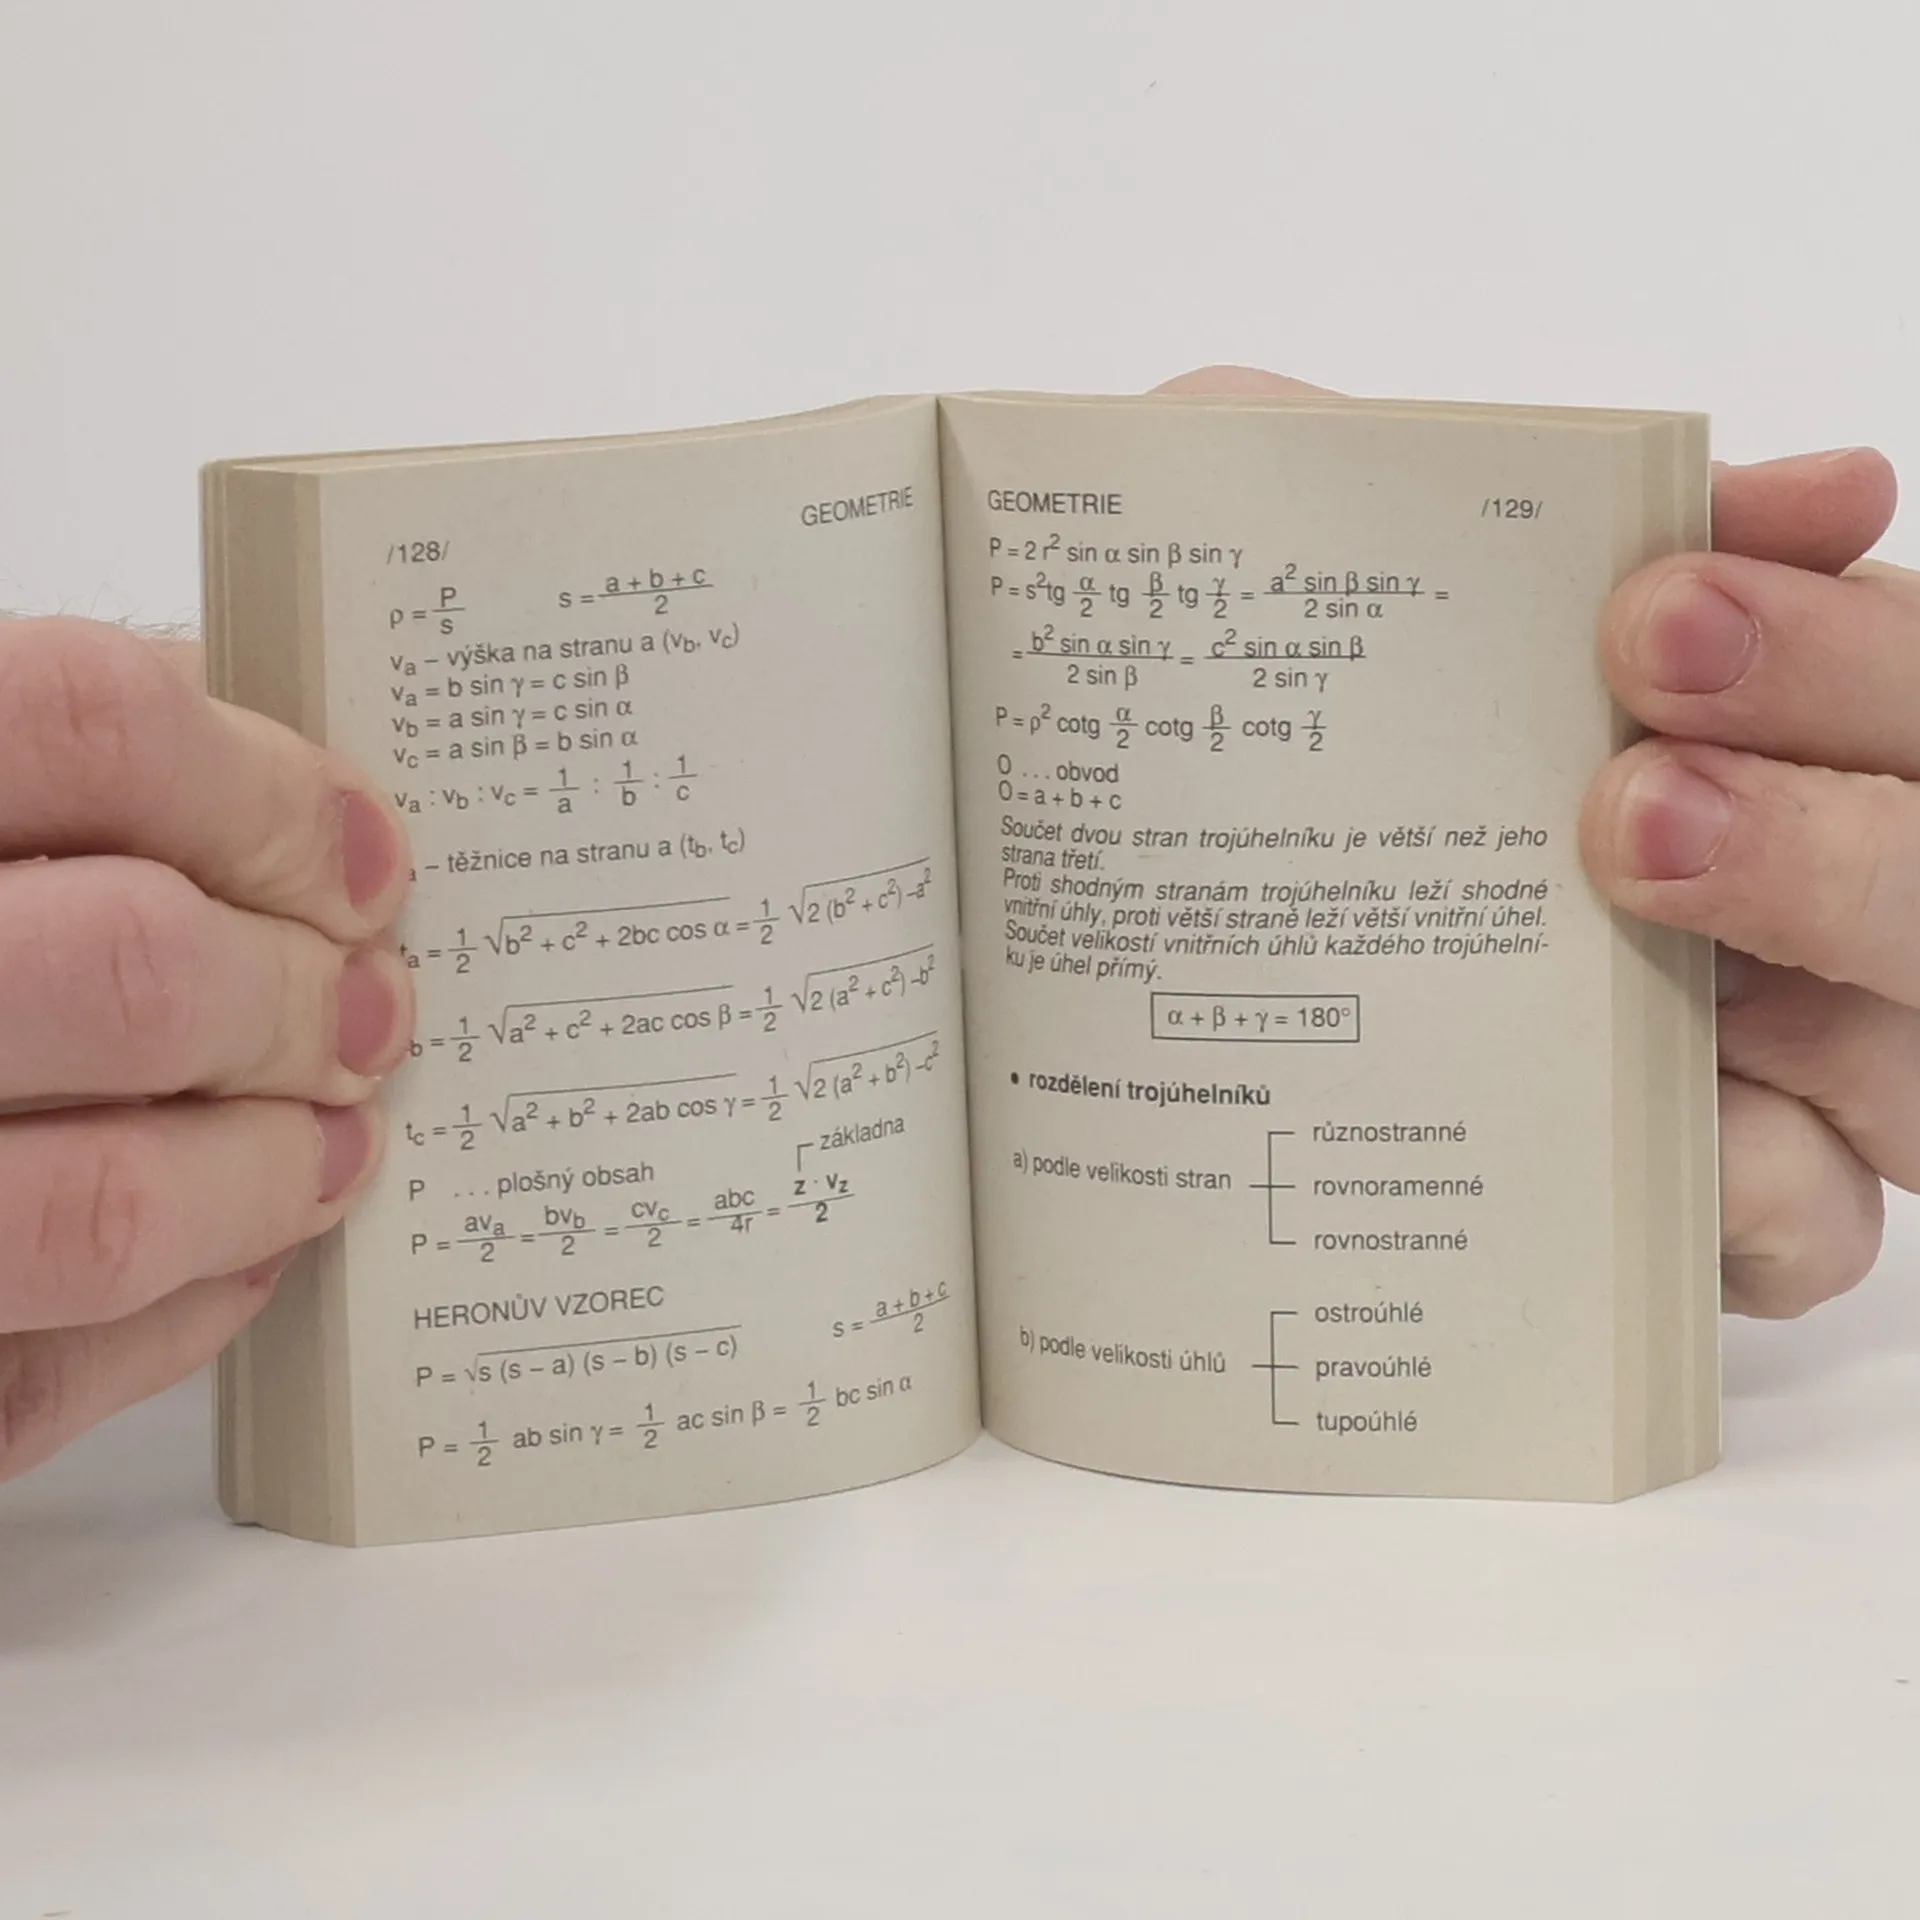 /128/ GEOMETRIE
ρ = P/s s = (a + b + c)/2
va – výška na stranu a (vb, vc)
va = b sin γ = c sin β
vb = a sin γ = c sin α
vc = a sin β = b sin α
va : vb : vc = 1/a : 1/b : 1/c
a – těžnice na stranu a (tb, tc)
ta = 1/2 √(b² + c² + 2bc cos α) = 1/2 √(2 (b² + c²) – a²)
b = 1/2 √(a² + c² + 2ac cos β) = 1/2 √(2 (a² + c²) – b²)
tc = 1/2 √(a² + b² + 2ab cos γ) = 1/2 √(2 (a² + b²) – c²)
základna
P ... plošný obsah
P = ava/2 = bvb/2 = cvc/2 = abc/4r = z · vz/2
HERONŮV VZOREC
P = √(s (s – a) (s – b) (s – c)) s = (a + b + c)/2
P = 1/2 ab sin γ = 1/2 ac sin β = 1/2 bc sin α
GEOMETRIE /129/
P = 2 r² sin α sin β sin γ
P = s² tg α/2 tg β/2 tg γ/2 = a² sin β sin γ/2 sin α =
= b² sin α sin γ/2 sin β = c² sin α sin β/2 sin γ
P = ρ² cotg α/2 cotg β/2 cotg γ/2
O ... obvod
O = a + b + c
Součet dvou stran trojúhelníku je větší než jeho
strana třetí.
Proti shodným stranám trojúhelníku leží shodné
vnitřní úhly, proti větší straně leží větší vnitřní úhel.
Součet velikostí vnitřních úhlů každého trojúhelní-
ku je úhel přímý.
α + β + γ = 180°
• rozdělení trojúhelníků
různostranné
a) podle velikosti stran rovnoramenné
rovnostranné
ostroúhlé
b) podle velikosti úhlů pravoúhlé
tupoúhlé